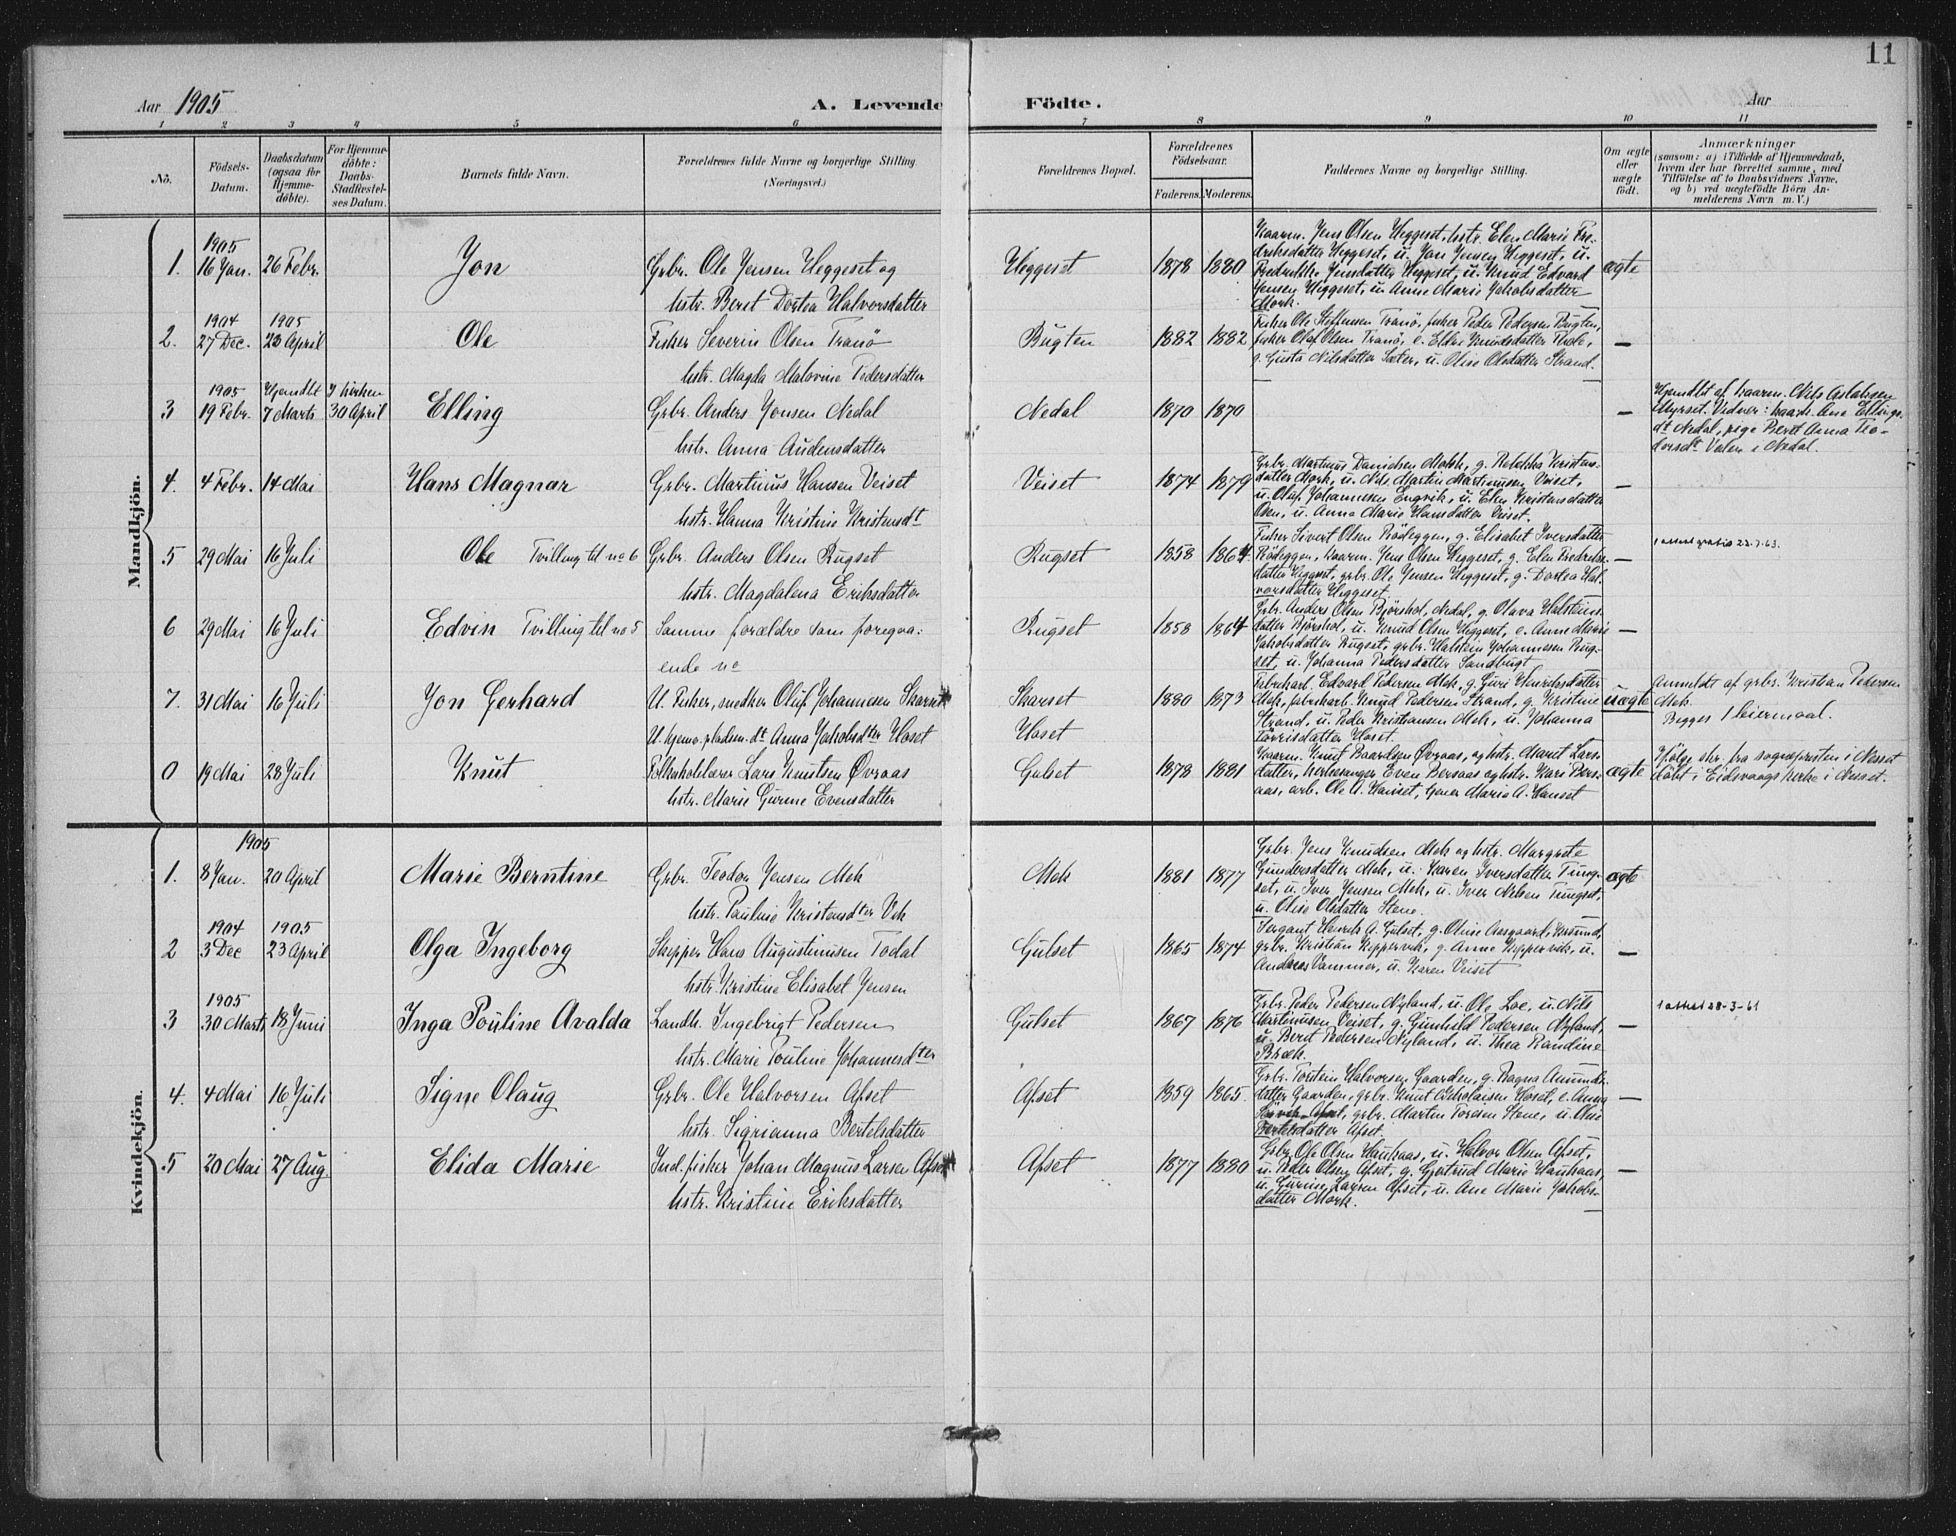 11
Aar 1905
A. Levende Födte.
Aar
1 2 3 4 5 6 7 8 9 10 11
No.
Födsels-Datum.
Daabsdatum (ogsaa for Hjemme-døbte).
For Hjemme-døbte: Daabs-Stadfæstel-ses Datum.
Barnets fulde Navn.
Forældrenes fulde Navne og borgerlige Stilling. (Næringsvei.)
Forældrenes Bopæl.
Forældrenes Födselsaar.
Faderens. Moderens.
Faddernes Navne og borgerlige Stilling.
Om ægte eller uægte födt.
Anmærkninger
(saasom: a) i Tilfælde af Hjemmedaab, hvem der har forrettet samme, med Tilföielse af to Daabsvidners Navne, og b) ved uægtefödte Börn An-melderens Navn m. V.)
Mandkjön.
1. 1905 16 Jan. 26 Febr. Jon
Grbr. Ole Jensen Heggeset og
hstr. Beret Dortea Halvorsdatter
Heggeset 1878 1880
Kaarm. Jens Olsen Heggeset, hstr. Elen Marie Fre-
driksdatter Heggeset, u. Jon Jensen Heggeset, u.
Fredrikke Jensdatter Heggeset, u. Knud Edvard
Jensen Heggeset, u. Anne Marie Jakobsdatter
Mork.
ægte
2. 1904 27 Dec. 1905 23 April Ole
Fisker Severin Olsen Tranö
hstr. Magda Malovine Pedersdatter
Bugten 1882 1882
Fisker Ole Steffensen Tranö, fisker Peder Pedersen Bugten,
fisker Olaf Olsen Tranö, e. Eldri Knudsdatter
g. Gusta Nilsdatter Sæter, u. Olise Olsdatter Strand.
—
3 1905 19 Febr. Hjemdbt 7 Marts I kirken 30 April Elling
Grbr. Anders Jonsen Nedal
hstr. Anna Audensdatter
Nedal 1870 1870
—
Hjemdbt af kaarm. Nils Aslaksen
Myrset. Vidner: kaark. Ane Ellings-
dt Nedal, pige Beret Anna Teo-
dorsdt Valen i Nedal.
4. 4 Febr. 14 Mai Hans Magnar
Grbr. Martinus Hansen Veiset
hstr. Hanna Kristine Kristensdt
Veiset 1874 1879
Grbr. Martinus Danielsen Mork, g. Rebekka Kristens-
datter Mork, u. Nils Martin Martinusen Veiset,
u. Oluf Johannesen Engvik, u. Elen Kristensdatter
Osen, u. Anna Marie Hansdatter Veiset.
—
5 29 Mai 16 Juli Ole Tvilling til no 6
Grbr. Anders Olsen Rugset
hstr. Magdalena Eriksdatter
Rugset 1858 1864
Fisker Sivert Olsen Rödeggen, g. Elisabet Iversdatter
Rödeggen, kaarm. Jens Olsen Heggeset, g. Elen Fredriks-
datter Heggeset, grbr. Ole Jensen Heggeset, g. Dortea Hal-
vorsdatter Heggeset.
—
1 attest gratis 23.7.63.
6 29 Mai 16 Juli Edvin Tvilling til no 5
Samme forældre som foregaa:
ende no
Rugset 1858 1864
Grbr. Anders Olsen Björshol, Nedal, g. Olava Halsteins-
datter Björshol, u. Knud Olsen Heggeset, e. Anne Marie
Jakobsdatter Rugset, grbr. Halstein Johannesen Rug-
set, u. Johanna Pedersdatter Sandbugt
—
7. 31 Mai 16 Juli Jon Gerhard
U. Fisker, snedker Oluf Johannesen Skarset
U. hjemv. pladsm. dt Anna Jakobsdter Hoset
Skarset
Hoset
1880 1873
Fabrikarb. Edvard Pedersen Mek, g. Guri Henriksdatter
Mek, fabrikarb. Knud Pedersen Strand, g. Kristine
Strand, u. Peder Kristiansen Mek, u. Johanna
Torrisdatter Hoset.
uægte
Anmeldt af grbr. Kristian Pedersen
Mek.
Begges 1 leiermaal.
0 19 Mai 28 Juli Knut
Folkeskolelærer Lars Knutsen Øvraas
hstr. Marie Gurine Evensdatter
Gulset 1878 1881
Kaarm. Knut Baardsen Øvraas, og hstr. Marit Lars-
datter, kirkesanger Even Bersaas og hstr. Kari Bers-
aas, arb. Ole A. Hanset, Marie A. Hanset
ægte
Ifölge skr. fra sognepresten i Nesset
döbt i Eidsvaags kirke i Nesset.
Kvindekjön.
1. 1905 8 Jan. 20 April Marie Berntine
Grbr. Teodor Jensen Mek
hstr. Pauline Kristensdter Vik
Mek 1881 1877
Grbr. Jens Knudsen Mek og hstr. Margrete
Gundersdatter Mek, u. Karen Iversdatter Tung-
set, u. Iver Jensen Mek, u. Iver Nilsen Tungset,
u. Olise Olsdatter Stene.
ægte
2 1904 3 Dec 1905 23 April Olga Ingeborg
Skipper Hans Augustinusen Todal
hstr. Kristine Elisabet Jensen
Gulset 1865 1874
Sergant Henrik A. Gulset, g. Oline Aasgaard, Krsund,
grbr. Kristian Kippervik, g. Anne Kippervik, u.
Andreas Vammer, u. Karen Veiset
—
3 1905 30 Marts 18 Juni Inga Pouline Avalda
Landh. Ingebrigt Pedersen
hstr. Marie Pouline Johannesdter
Gulset 1867 1876
Grbr. Peder Pedersen Nyland, u. Ole Loe, u. Nils
Martinusen Veiset, g. Gunhild Pedersen Nyland,
u. Berit Pedersen Nyland, u. Thea Randine
Bræk.
—
1 attest 28-3-61
4. 4 Mai 16 Juli Signe Olaug
Grbr. Ole Halvorsen Afset
hstr. Sigrianna Bertelsdatter
Afset 1859 1865
Grbr. Torstein Halvorsen Gaarden, g. Ragna Amunds-
datter Gaarden, grbr. Knut Nikolaisen Hoset, e. Anna
Afset, grbr. Martin Toresen Stene, u. Olise
Bertelsdatter Afset.
—
5 20 Mai 27 Aug Elida Marie
Ind. fisker Johan Magnus Larsen Afset
hstr. Kristine Eriksdatter
Afset 1877 1880
Grbr Ole Olsen Hauhaas, u. Halvor Olsen Afset,
u. Peder Olsen Afset, g. Gjertrud Marie Hauhaas,
u. Gurine Larsen Afset, u. Ane Marie Jakobs-
datter Mork.
—